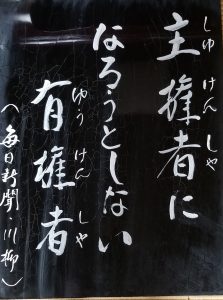 しゅ けん しゃ
主権者に
なろうとしない
ゆう けん しゃ
有権者
(毎日新聞・川柳)